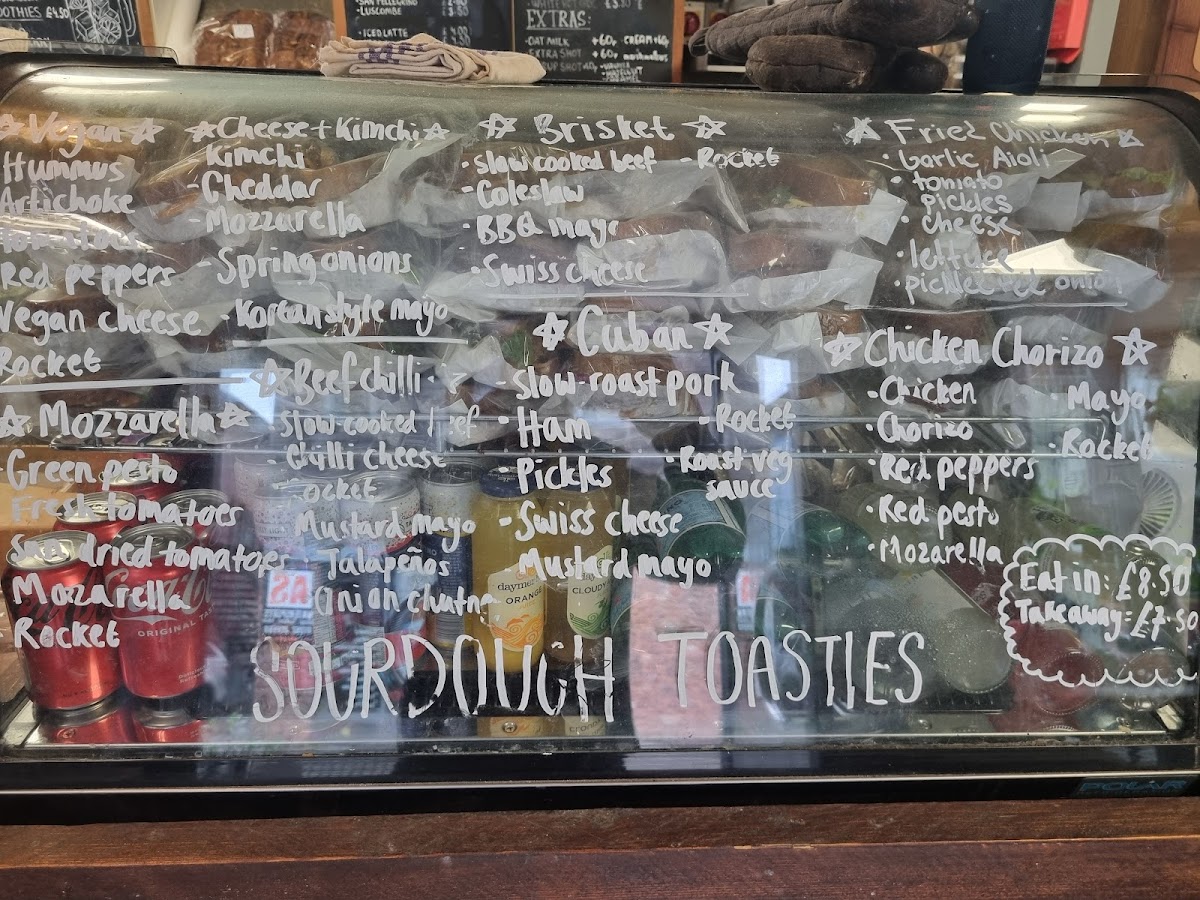 OOTHIES £4.50
SAN PELLEGRINO
LUSCOMBE
ICED LATTE
EXTRAS:
OAT MILK +60p CREAM +60p
EXTRA SHOT +60p marshmallows
☆ Vegan ☆
Hummus
Artichoke
Tomatoes
Red peppers
Vegan cheese
Rocket
☆ Mozzarella ☆
- Green pesto
Fresh tomatoes
Sun dried tomatoes
Mozarella
Rocket
☆ Cheese + Kimchi ☆
Kimchi
- Cheddar
- Mozzarella
Spring onions
- Korean style mayo
☆ Beef chilli
Slow cooked beef
- Chilli cheese
- ocket
Mustard mayo
Jalapeños
onion chutne
☆ Brisket ☆
- Slow cooked beef - Rocket
- Coleslaw
- BBQ mayo
- Swiss cheese
☆ Cuban ☆
- Slow-roast pork
- Ham
- Rocket
Pickles
- Roast veg
sauce
- Swiss cheese
- Mustard mayo
☆ Fried Chicken ☆
• Garlic Aioli
• tomato
pickles
• cheese
• lettuce
• pickled red onion
☆ Chicken Chorizo ☆
• Chicken
- Mayo
• Chorizo
• Rocket
• Red peppers
• Red pesto
• Mozarella
Eat in: £8.50
Takeaway: £7.50
SOURDOUGH TOASTIES
daymer
ORANGE
CLOUDY
ORIGINAL TA
POLAR